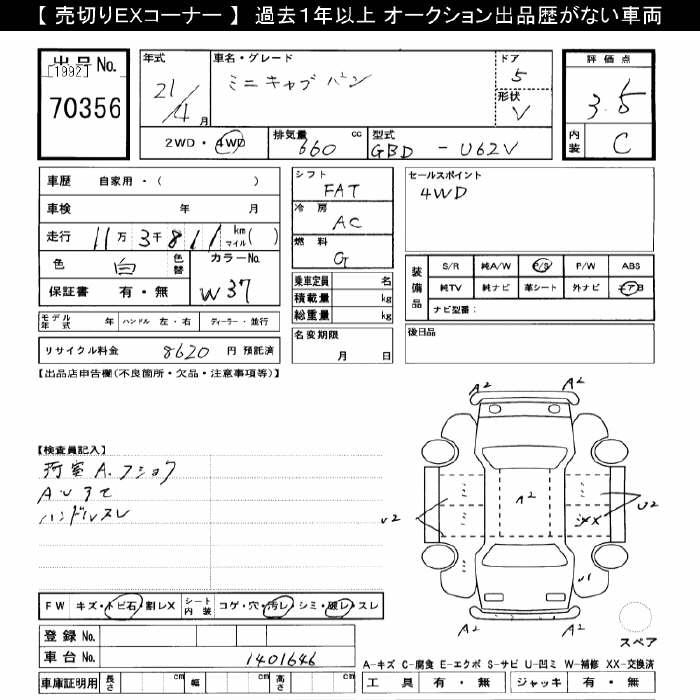 【 売切りEXコーナー 】 過去1年以上 オークション出品歴がない車両
出品 No.
[1992]
70356
年式
21/4 月
車名・グレード
ミニキャブ バン
ドア
5
形状
V
評価点
3.5
内装
C
2WD・4WD
排気量
660 cc
型式
GBD - U62V
車歴 自家用・( )
車検 年 月
走行 11万 3千 811 km マイル ( )
色 白 色替
カラーNo.
W37
保証書 有・無
モデル年式 年 ハンドル 左・右 ディーラー・並行
リサイクル料金 8620 円 預託済
シフト
FAT
冷房
AC
燃料
G
乗車定員 名
積載量 kg
総重量 kg
名変期限
月 日
セールスポイント
4WD
装備品
S/R 純A/W P/S P/W ABS
純TV 純ナビ 革シート 外ナビ エアB
ナビ型番:
後日品
【出品店申告欄(不良箇所・欠品・注意事項等)】
【検査員記入】
荷室 A.フショク
AU3て
ハンドルスレ
FW キズ・トビ石・割レX シート内装 コゲ・穴・汚レ・シミ・破レ・スレ
登録 No.
車台 No. 1401646
車庫証明用 長さ cm 幅 cm 高さ cm
A2 A2
A2
U2 U2
XX
U1
A2 A2
スペア
A-キズ C-腐食 E-エクボ S-サビ U-凹ミ W-補修 XX-交換済
工具 有・無 ジャッキ 有・無